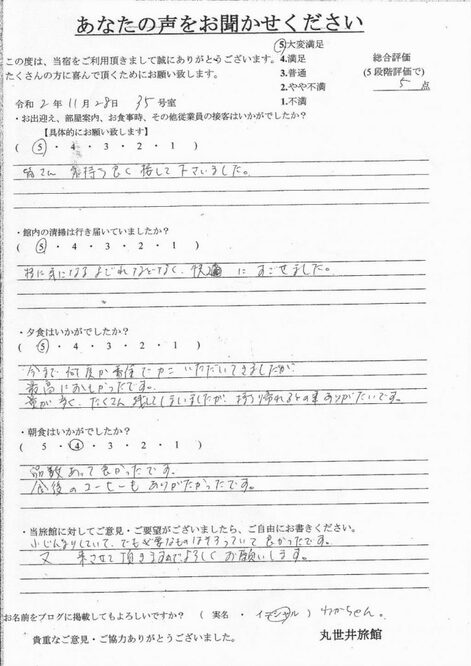 あなたの声をお聞かせください
この度は、当宿をご利用頂きまして誠にありがとうございます。
たくさんの方に喜んで頂くためにお願い致します。
5.大変満足
4.満足
3.普通
2.やや不満
1.不満
総合評価
(5段階評価で)
5 点
令和 2年 11月 28日 35号室
・お出迎え、部屋案内、お食事時、その他従業員の接客はいかがでしたか?
【具体的にお願い致します】
( 5 ・ 4 ・ 3 ・ 2 ・ 1 )
皆さん 気持ち良く 接して下さいました。
・館内の清掃は行き届いていましたか?
( 5 ・ 4 ・ 3 ・ 2 ・ 1 )
特に気になるよごれなどなく、快適にすごせました。
・夕食はいかがでしたか?
( 5 ・ 4 ・ 3 ・ 2 ・ 1 )
今まで何度か香住でカニいただいてきましたが
最高においしかったです。
量が多く、たくさん残してしまいましたが、持ち帰れるのもありがたいです。
・朝食はいかがでしたか?
( 5 ・ 4 ・ 3 ・ 2 ・ 1 )
品数あって良かったです。
食後のコーヒーもありがたかったです。
・当旅館に対してご意見・ご要望がございましたら、ご自由にお書きください。
小じんまりしていて、でも必要なものはそろっていて良かったです。
又、来させて頂きますのでよろしくお願いします。
お名前をブログに掲載してもよろしいですか? ( 実名 ・ イニシャル ) わかちゃん。
貴重なご意見・ご協力ありがとうございました。
丸世井旅館